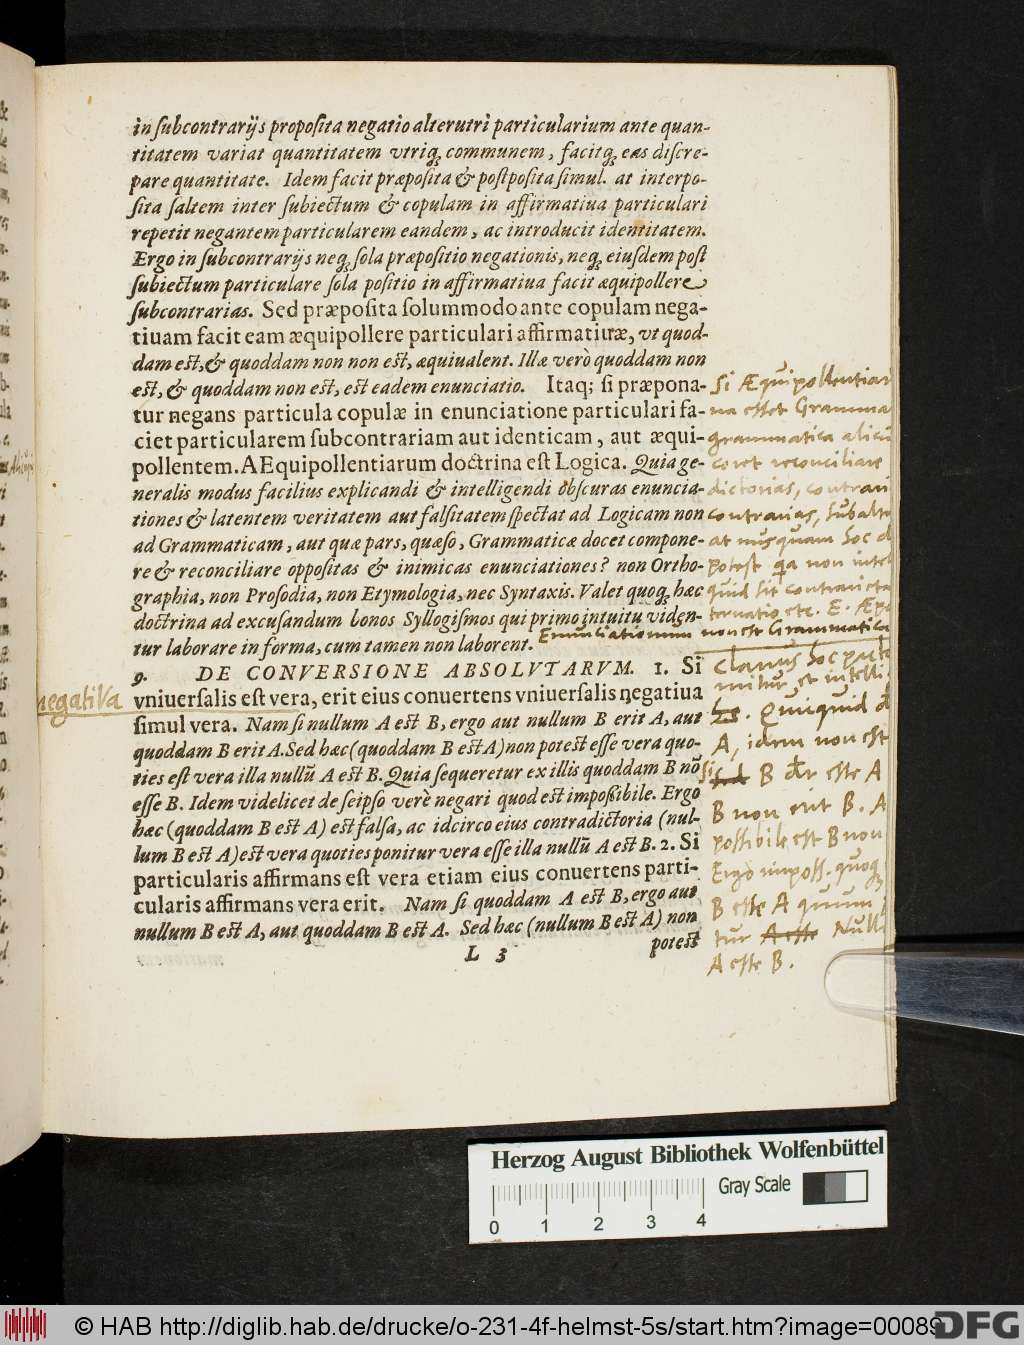 in subcontrarijs proposita negatio alterutri particularium ante quan-
titatem variat quantitatem vtriq; communem, facitq; eas discre-
pare quantitate. Idem facit præposita & postposita simul. at interpo-
sita saltem inter subiectum & copulam in affirmatiua particulari
repetit negantem particularem eandem, ac introducit identitatem.
Ergo in subcontrarijs neq; sola præpositio negationis, neq; eiusdem post
subiectum particulare sola positio in affirmatiua facit æquipollere
subcontrarias. Sed præposita solummodo ante copulam nega-
tiuam facit eam æquipollere particulari affirmatiuæ, vt quod-
dam est, & quoddam non non est, æquiualent. Illæ verò quoddam non
est, & quoddam non est, est eadem enunciatio. Itaq; si præpona-
tur negans particula copulæ in enunciatione particulari fa-
ciet particularem subcontrariam aut identicam, aut æqui-
pollentem. AEquipollentiarum doctrina est Logica. Quia ge-
neralis modus facilius explicandi & intelligendi obscuras enuncia-
tiones & latentem veritatem aut falsitatem spectat ad Logicam non
ad Grammaticam, aut quæ pars, quæso, Grammaticæ docet compone-
re & reconciliare oppositas & inimicas enunciationes? non Ortho-
graphia, non Prosodia, non Etymologia, nec Syntaxis. Valet quoq; hæc
doctrina ad excusandum bonos Syllogismos qui primo intuitu viden-
tur laborare in forma, cum tamen non laborent.
9. DE CONVERSIONE ABSOLVTARVM. 1. Si
vniuersalis est vera, erit eius conuertens vniuersalis negatiua
simul vera. Nam si nullum A est B, ergo aut nullum B erit A, aut
quoddam B erit A. Sed hæc (quoddam B est A) non potest esse vera quo-
ties est vera illa nullū A est B. Quia sequeretur ex illis quoddam B nō
esse B. Idem videlicet de seipso verè negari quod est impoßibile. Ergo
hæc (quoddam B est A) est falsa, ac idcirco eius contradictoria (nul-
lum B est A) est vera quoties ponitur vera esse illa nullū A est B. 2. Si
particularis affirmans est vera etiam eius conuertens parti-
cularis affirmans vera erit. Nam si quoddam A est B, ergo aut
nullum B est A, aut quoddam B est A. Sed hæc (nullum B est A) non
L 3
potest
negativa
Si Æquipollentiar
na esset Gramma
grammatica alicu
coret reconciliare
dictorias, contrari
contrarias, subalte
at nusquam hoc d
potest qa non intel
quid sit contradicta
ternatio etc. E. Æpo
Enunciationum non est Grammatica
Clavius hoc
. Quiquid
A, idem non est
si B dr esse A
B non erit B. A
possibile est B non
Ergo imposs. quoq
B esse A quum
tur Null
A esse B.
Herzog August Bibliothek Wolfenbüttel
Gray Scale
0 1 2 3 4
© HAB http://diglib.hab.de/drucke/o-231-4f-helmst-5s/start.htm?image=00089
DFG